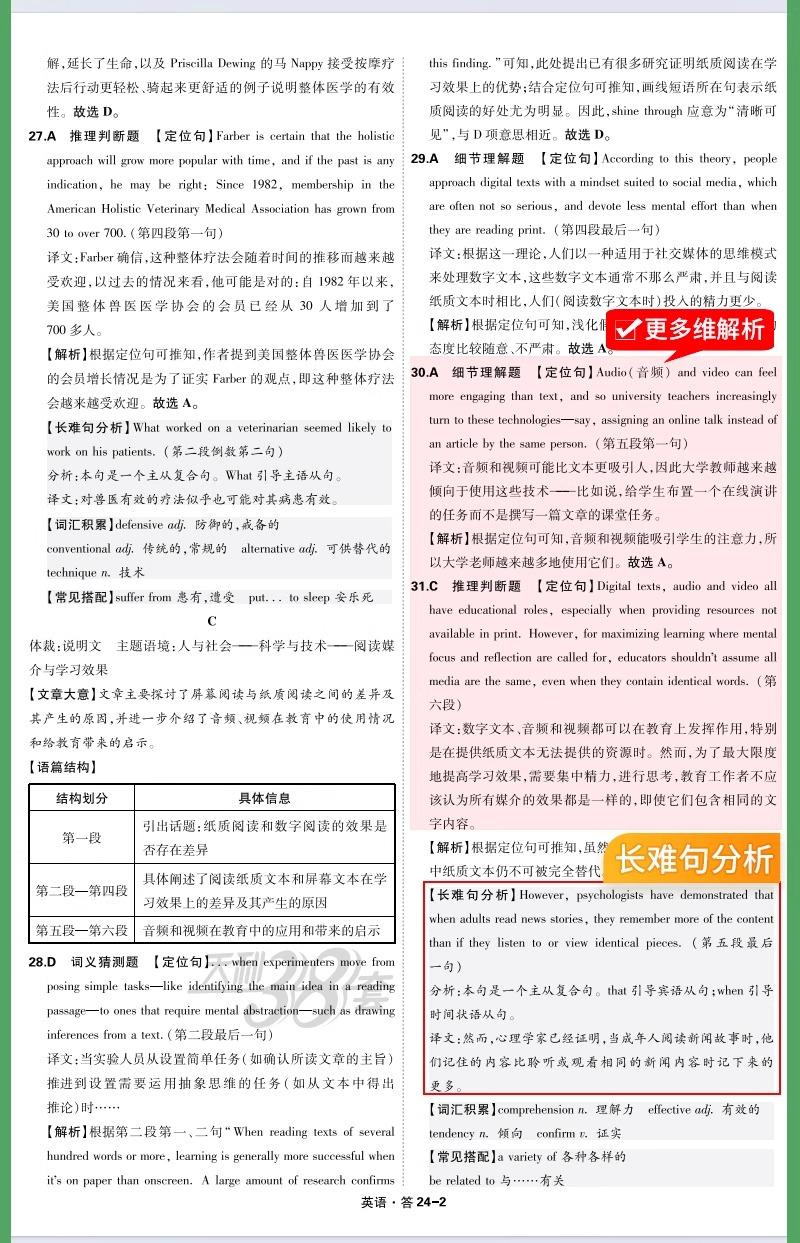 解,延长了生命,以及 Priscilla Dewing 的马 Nappy 接受按摩疗
法后行动更轻松、骑起来更舒适的例子说明整体医学的有效
性。故选 D。
27.A 推理判断题 【定位句】Farber is certain that the holistic
approach will grow more popular with time, and if the past is any
indication, he may be right: Since 1982, membership in the
American Holistic Veterinary Medical Association has grown from
30 to over 700.(第四段第一句)
译文:Farber 确信,这种整体疗法会随着时间的推移而越来越
受欢迎,以过去的情况来看,他可能是对的:自 1982 年以来,
美国整体兽医医学协会的会员已经从 30 人增加到了
700 多人。
【解析】根据定位句可推知,作者提到美国整体兽医医学协会
的会员增长情况是为了证实 Farber 的观点,即这种整体疗法
会越来越受欢迎。故选 A。
【长难句分析】What worked on a veterinarian seemed likely to
work on his patients.(第二段倒数第二句)
分析:本句是一个主从复合句。What 引导主语从句。
译文:对兽医有效的疗法似乎也可能对其病患有效。
【词汇积累】defensive adj. 防御的,戒备的
conventional adj. 传统的,常规的 alternative adj. 可供替代的
technique n. 技术
【常见搭配】suffer from 患有,遭受 put... to sleep 安乐死
C
体裁:说明文 主题语境:人与社会——科学与技术——阅读媒
介与学习效果
【文章大意】文章主要探讨了屏幕阅读与纸质阅读之间的差异及
其产生的原因,并进一步介绍了音频、视频在教育中的使用情况
和给教育带来的启示。
【语篇结构】
结构划分 具体信息
第一段 引出话题:纸质阅读和数字阅读的效果是
否存在差异
第二段—第四段 具体阐述了阅读纸质文本和屏幕文本在学
习效果上的差异及其产生的原因
第五段—第六段 音频和视频在教育中的应用和带来的启示
28.D 词义猜测题 【定位句】... when experimenters move from
posing simple tasks—like identifying the main idea in a reading
passage—to ones that require mental abstraction—such as drawing
inferences from a text.(第二段最后一句)
译文:当实验人员从设置简单任务(如确认所读文章的主旨)
推进到设置需要运用抽象思维的任务(如从文本中得出
推论)时……
【解析】根据第二段第一、二句“When reading texts of several
hundred words or more, learning is generally more successful when
it's on paper than onscreen. A large amount of research confirms
this finding.”可知,此处提出已有很多研究证明纸质阅读在学
习效果上的优势;结合定位句可推知,画线短语所在句表示纸
质阅读的好处尤为明显。因此,shine through 应意为“清晰可
见”,与 D 项意思相近。故选 D。
29.A 细节理解题 【定位句】According to this theory, people
approach digital texts with a mindset suited to social media, which
are often not so serious, and devote less mental effort than when
they are reading print.(第四段最后一句)
译文:根据这一理论,人们以一种适用于社交媒体的思维模式
来处理数字文本,这些数字文本通常不那么严肃,并且与阅读
纸质文本时相比,人们(阅读数字文本时)投入的精力更少。
【解析】根据定位句可知,浅化假
更多维解析
的
态度比较随意、不严肃。故选 A。
30.A 细节理解题 【定位句】Audio(音频) and video can feel
more engaging than text, and so university teachers increasingly
turn to these technologies—say, assigning an online talk instead of
an article by the same person.(第五段第一句)
译文:音频和视频可能比文本更吸引人,因此大学教师越来越
倾向于使用这些技术——比如说,给学生布置一个在线演讲
的任务而不是撰写一篇文章的课堂任务。
【解析】根据定位句可知,音频和视频能吸引学生的注意力,所
以大学老师越来越多地使用它们。故选 A。
31.C 推理判断题 【定位句】Digital texts, audio and video all
have educational roles, especially when providing resources not
available in print. However, for maximizing learning where mental
focus and reflection are called for, educators shouldn't assume all
media are the same, even when they contain identical words.(第
六段)
译文:数字文本、音频和视频都可以在教育上发挥作用,特别
是在提供纸质文本无法提供的资源时。然而,为了最大限度
地提高学习效果,需要集中精力,进行思考,教育工作者不应
该认为所有媒介的效果都是一样的,即使它们包含相同的文
字内容。
【解析】根据定位句可推知,虽然
长难句分析
中纸质文本仍不可被完全替代
【长难句分析】However, psychologists have demonstrated that
when adults read news stories, they remember more of the content
than if they listen to or view identical pieces.(第五段最后
一句)
分析:本句是一个主从复合句。that 引导宾语从句;when 引导
时间状语从句。
译文:然而,心理学家已经证明,当成年人阅读新闻故事时,他
们记住的内容比聆听或观看相同的新闻内容时记下来的
更多。
【词汇积累】comprehension n. 理解力 effective adj. 有效的
tendency n. 倾向 confirm v. 证实
【常见搭配】a variety of 各种各样的
be related to 与……有关
英语·答 24-2
天利38套